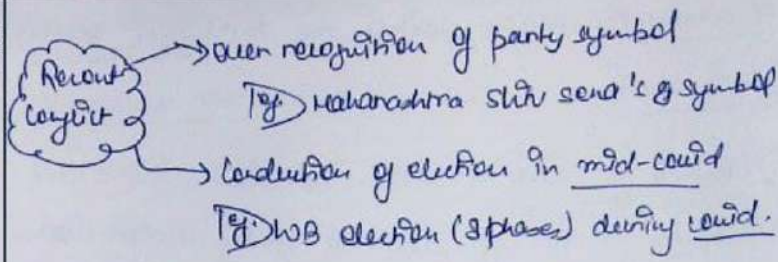 Recent
Conflict
→ over recognition of party symbol
eg. Maharashtra Shiv sena's symbol
→ Conduction of election in mid-covid
eg. WB election (8 phases) during covid.